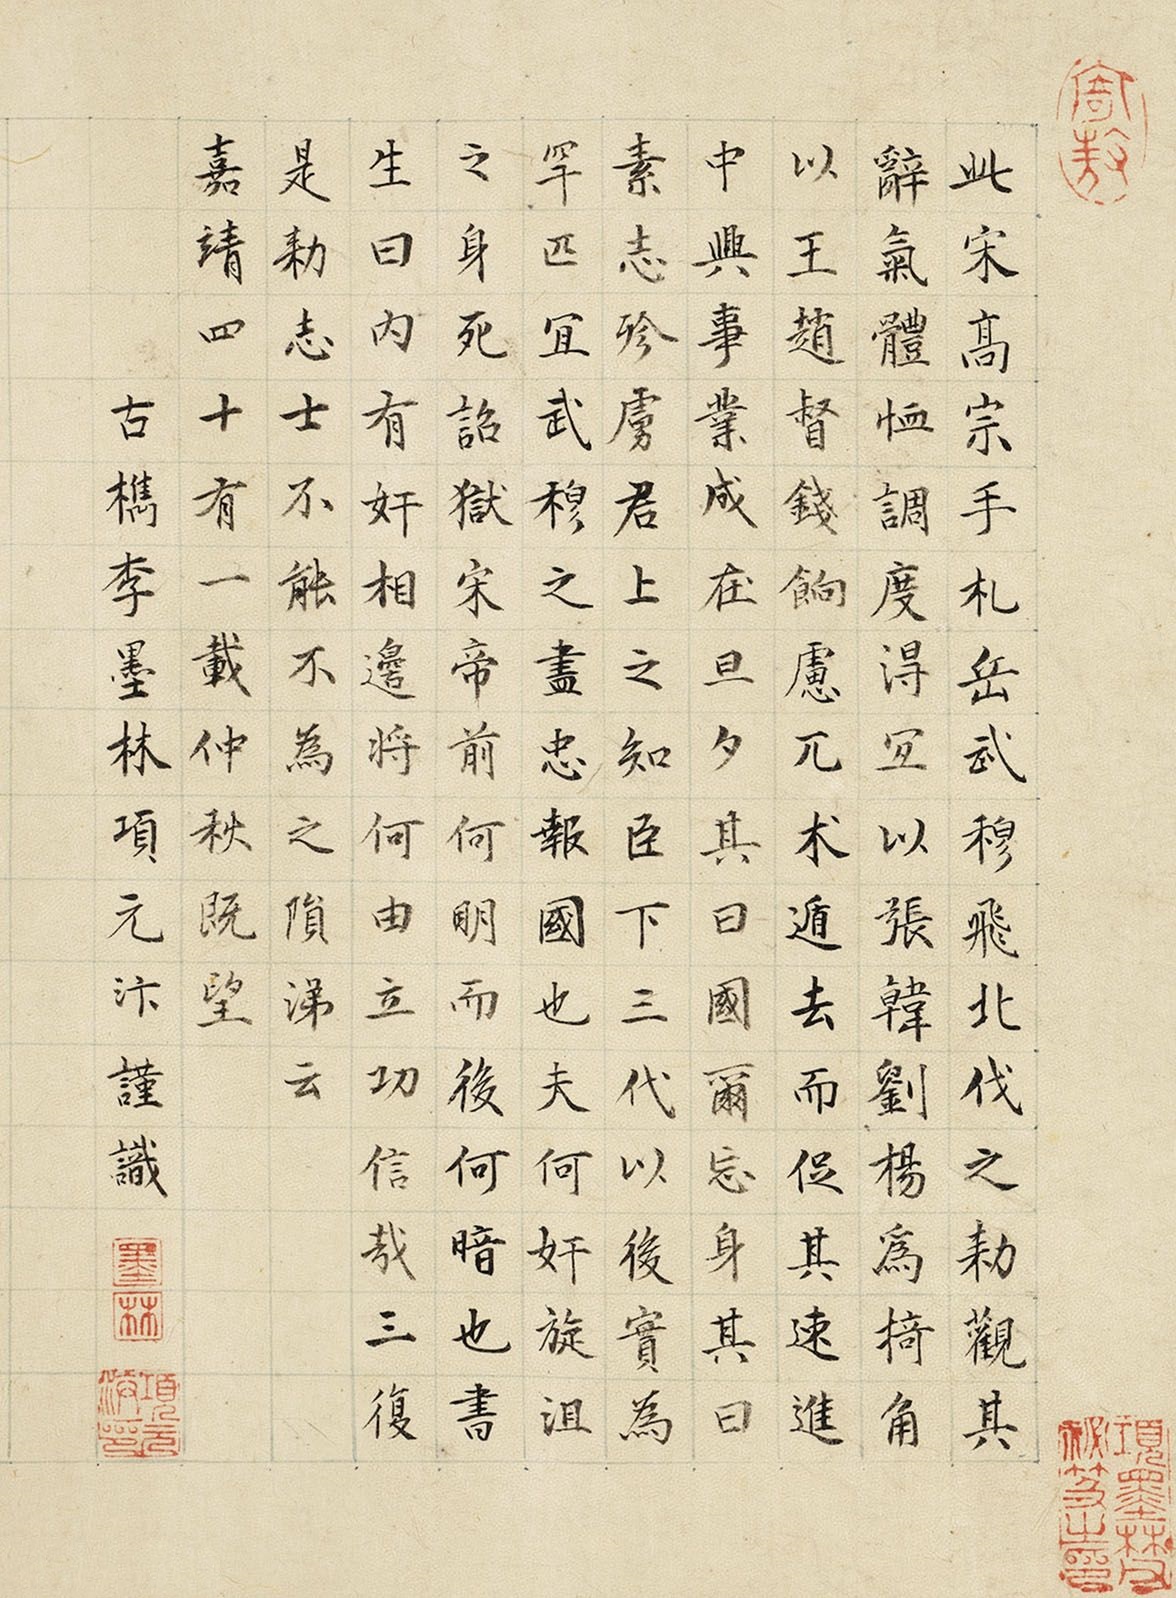 此宋髙宗手札岳武穆飛北伐之勑觀其
辭氣體恤調度得宜以張韓劉楊為掎角
以王趙督錢餉慮兀术遁去而促其速進
中興事業成在旦夕其曰國爾忘身其曰
素志殄虜君上之知臣下三代以後實為
罕匹冝武穆之盡忠報國也夫何奸旋沮
之身死詔獄宋帝前何明而後何暗也書
生曰內有奸相邊将何由立功信哉三復
是勑志士不能不為之隕涕云
嘉靖四十有一載仲秋既望
古檇李墨林項元汴謹識
墨林
項墨林父祕笈之印